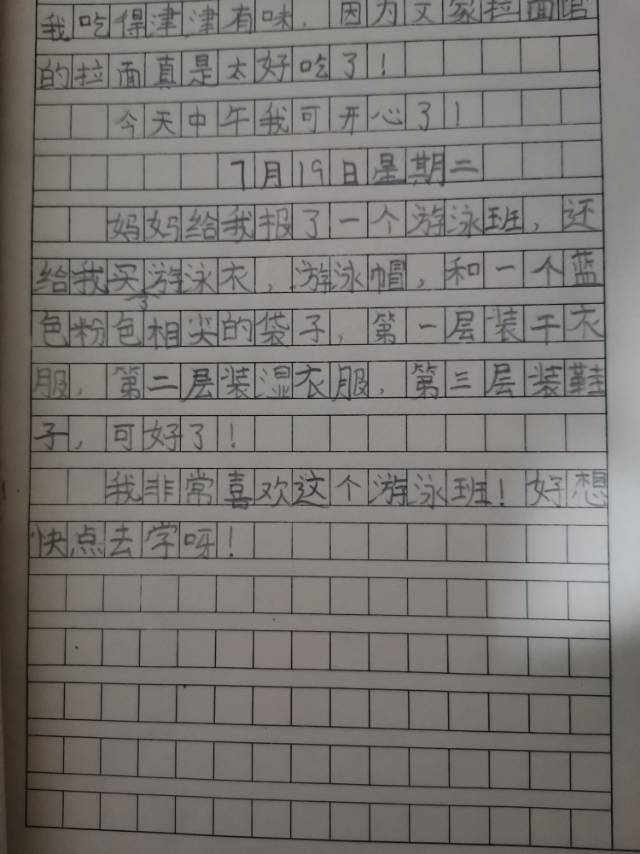 我吃得津津有味，因为文家拉面馆
的拉面真是太好吃了！
今天中午我可开心了！
7月19日星期二
妈妈给我报了一个游泳班，还
给我买了游泳衣，游泳帽，和一个蓝
色粉色相尖的袋子，第一层装干衣
服，第二层装湿衣服，第三层装鞋
子，可好了！
我非常喜欢这个游泳班！好想
快点去学呀！